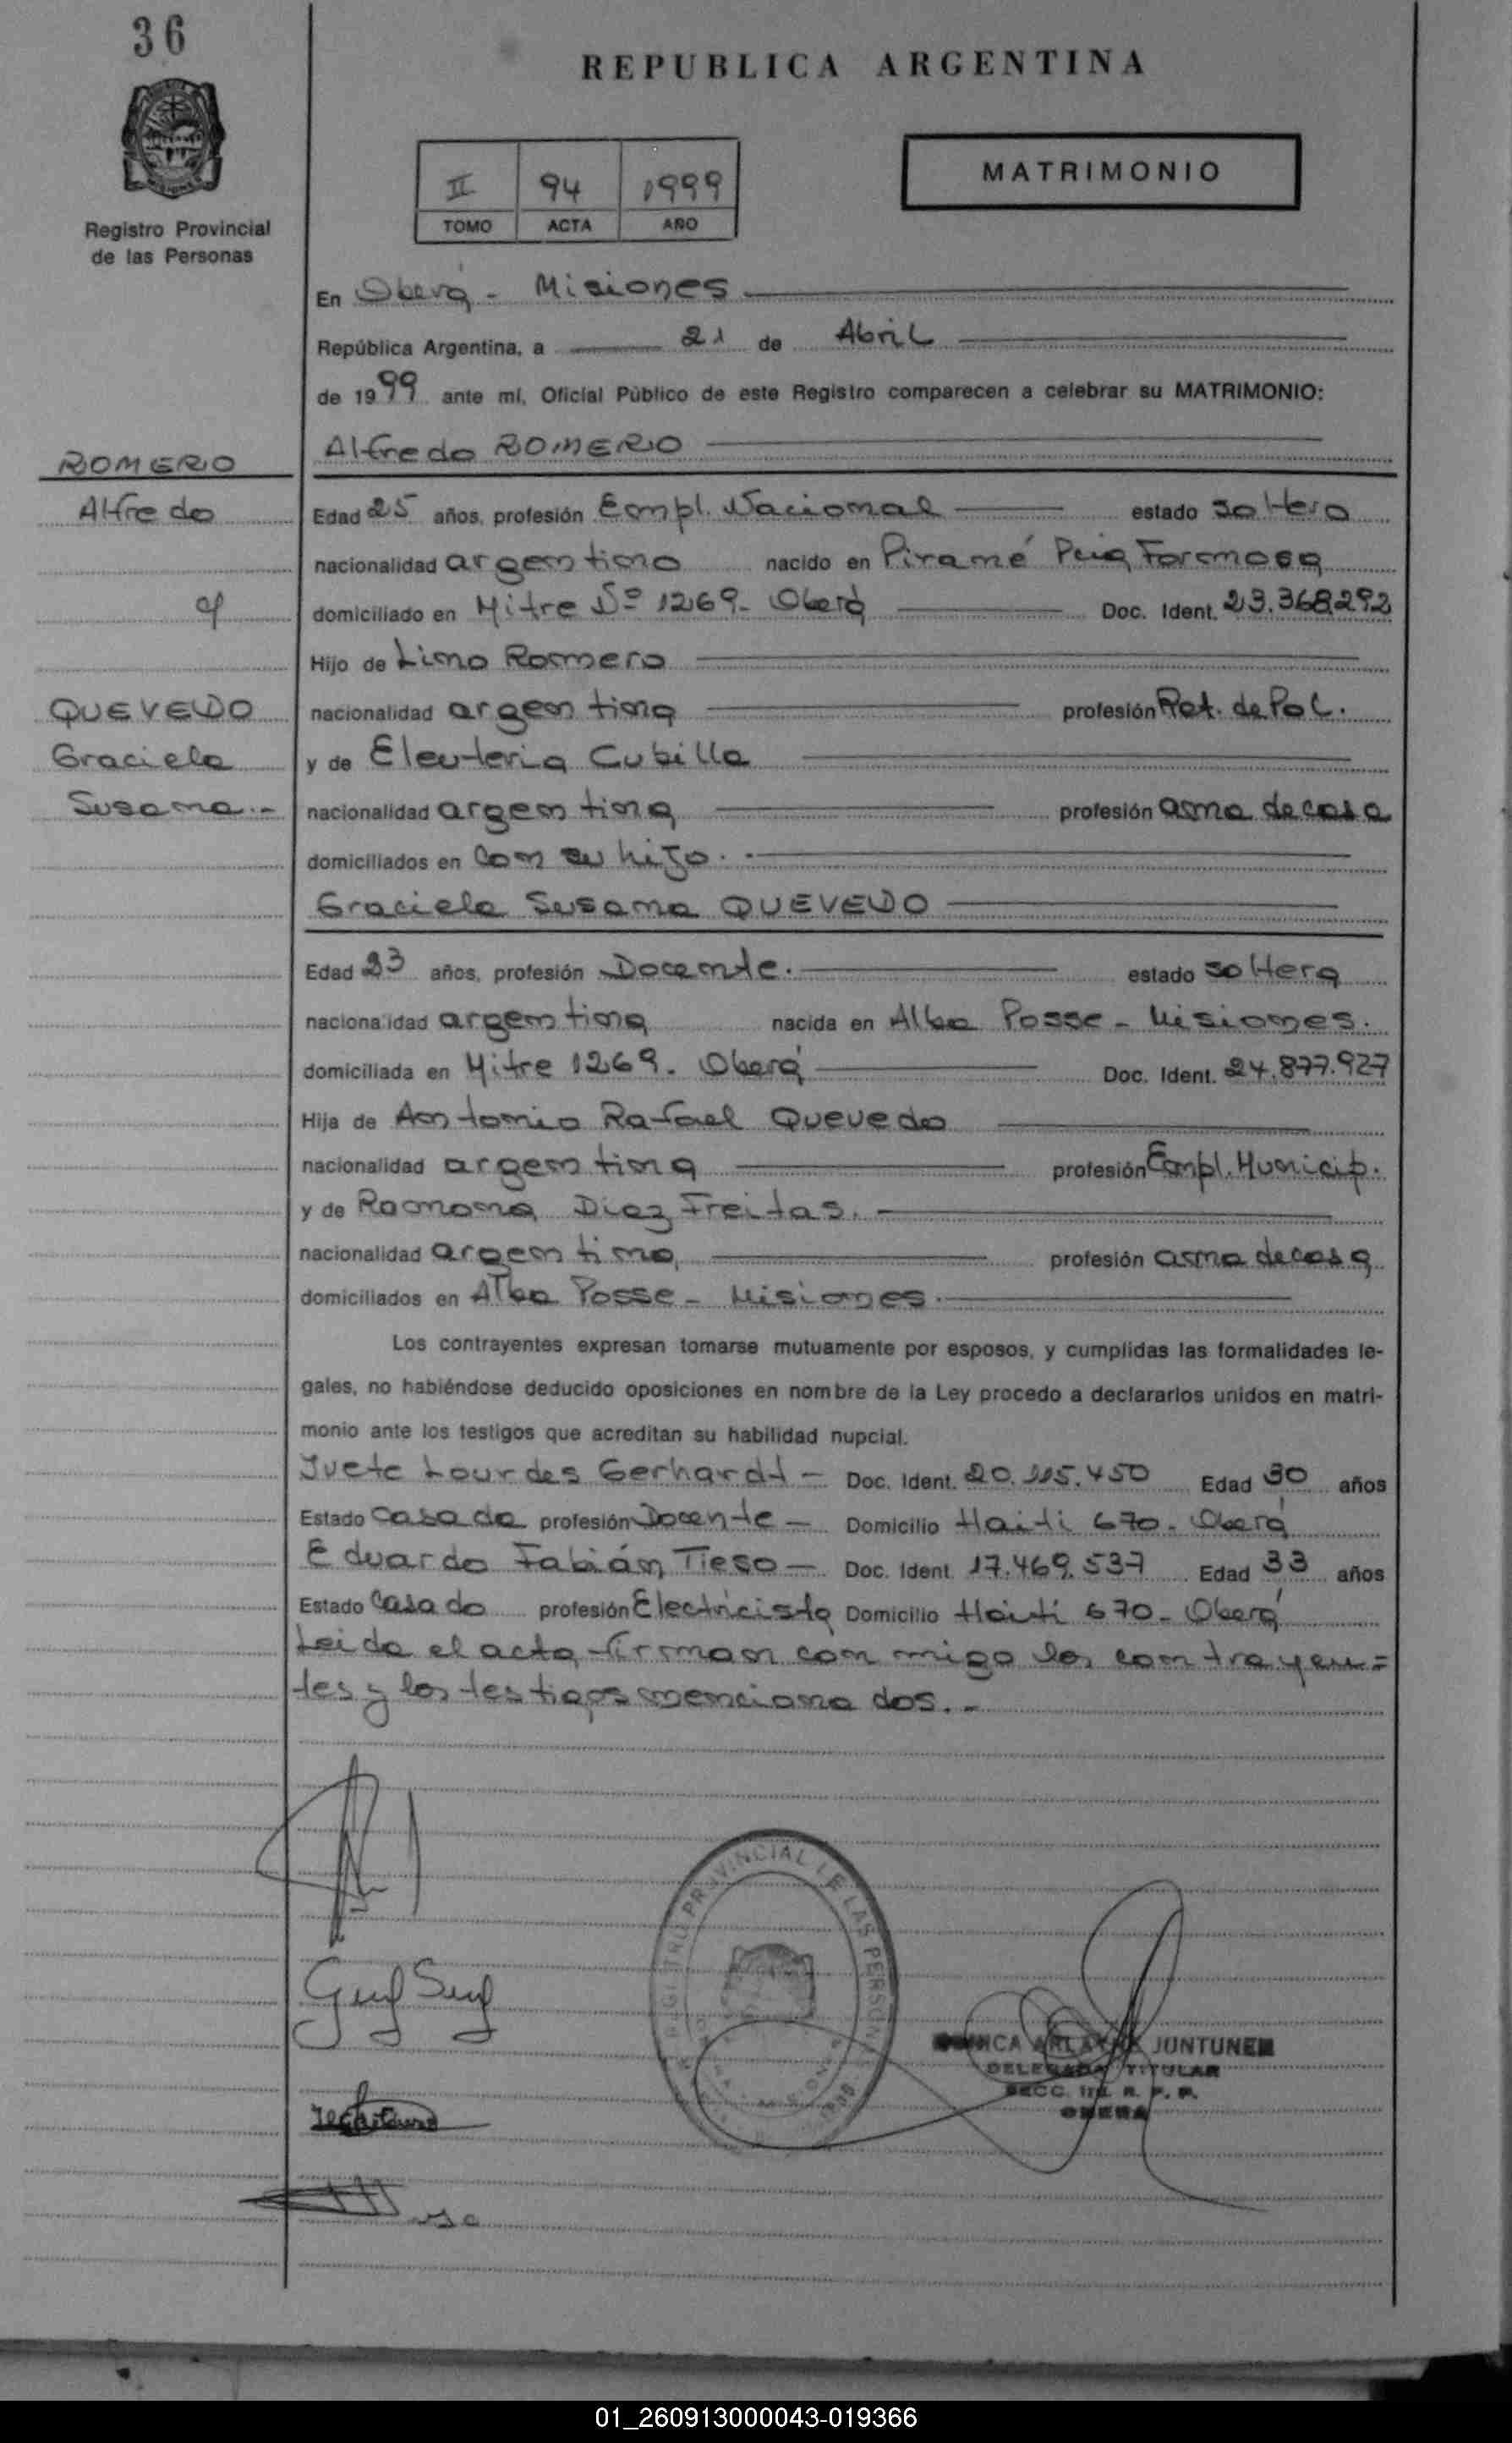 36
REPUBLICA ARGENTINA
MATRIMONIO
II 94 1999
TOMO ACTA AÑO
Registro Provincial
de las Personas
En Oberá - Misiones
República Argentina, a 21 de Abril
de 1999 ante mí, Oficial Público de este Registro comparecen a celebrar su MATRIMONIO:
ROMERO
Alfredo ROMERO
Alfredo
Edad 25 años, profesión Empl. Nacional estado soltero
nacionalidad argentino nacido en Pirané Pcia Formosa
c/
domiciliado en Mitre Nº 1269 - Oberá Doc. Ident. 23.368.292
Hijo de Lino Romero
QUEVEDO
nacionalidad argentina profesión Ret. de Pol.
Graciela
y de Eleuteria Cubilla
Susana.-
nacionalidad argentina profesión ama de casa
domiciliados en Con su hijo.
Graciela Susana QUEVEDO
Edad 23 años, profesión Docente. estado soltera
nacionalidad argentina nacida en Alba Posse - Misiones.
domiciliada en Mitre 1269. Oberá Doc. Ident. 24.877.927
Hija de Antonio Rafael Quevedo
nacionalidad argentina profesión Empl. Municip.
y de Ramona Diez Freitas.
nacionalidad argentina profesión ama de casa
domiciliados en Alba Posse - Misiones.
Los contrayentes expresan tomarse mutuamente por esposos, y cumplidas las formalidades le-
gales, no habiéndose deducido oposiciones en nombre de la Ley procedo a declararlos unidos en matri-
monio ante los testigos que acreditan su habilidad nupcial.
Ivete Lourdes Gerhardt - Doc. Ident. 20.115.450 Edad 30 años
Estado Casada profesión Docente - Domicilio Haiti 670 - Oberá
Eduardo Fabián Tieso - Doc. Ident. 17.469.537 Edad 33 años
Estado Casado profesión Electricista Domicilio Haití 670 - Oberá
Leida el acta firman con migo los contrayen=
tes y los testigos menciona dos.-
REGISTRO PROVINCIAL DE LAS PERSONAS
JUNTUNEN
DELEGADA TITULAR
SECC. 1ra. R. P. P.
OBERA
01_260913000043-019366